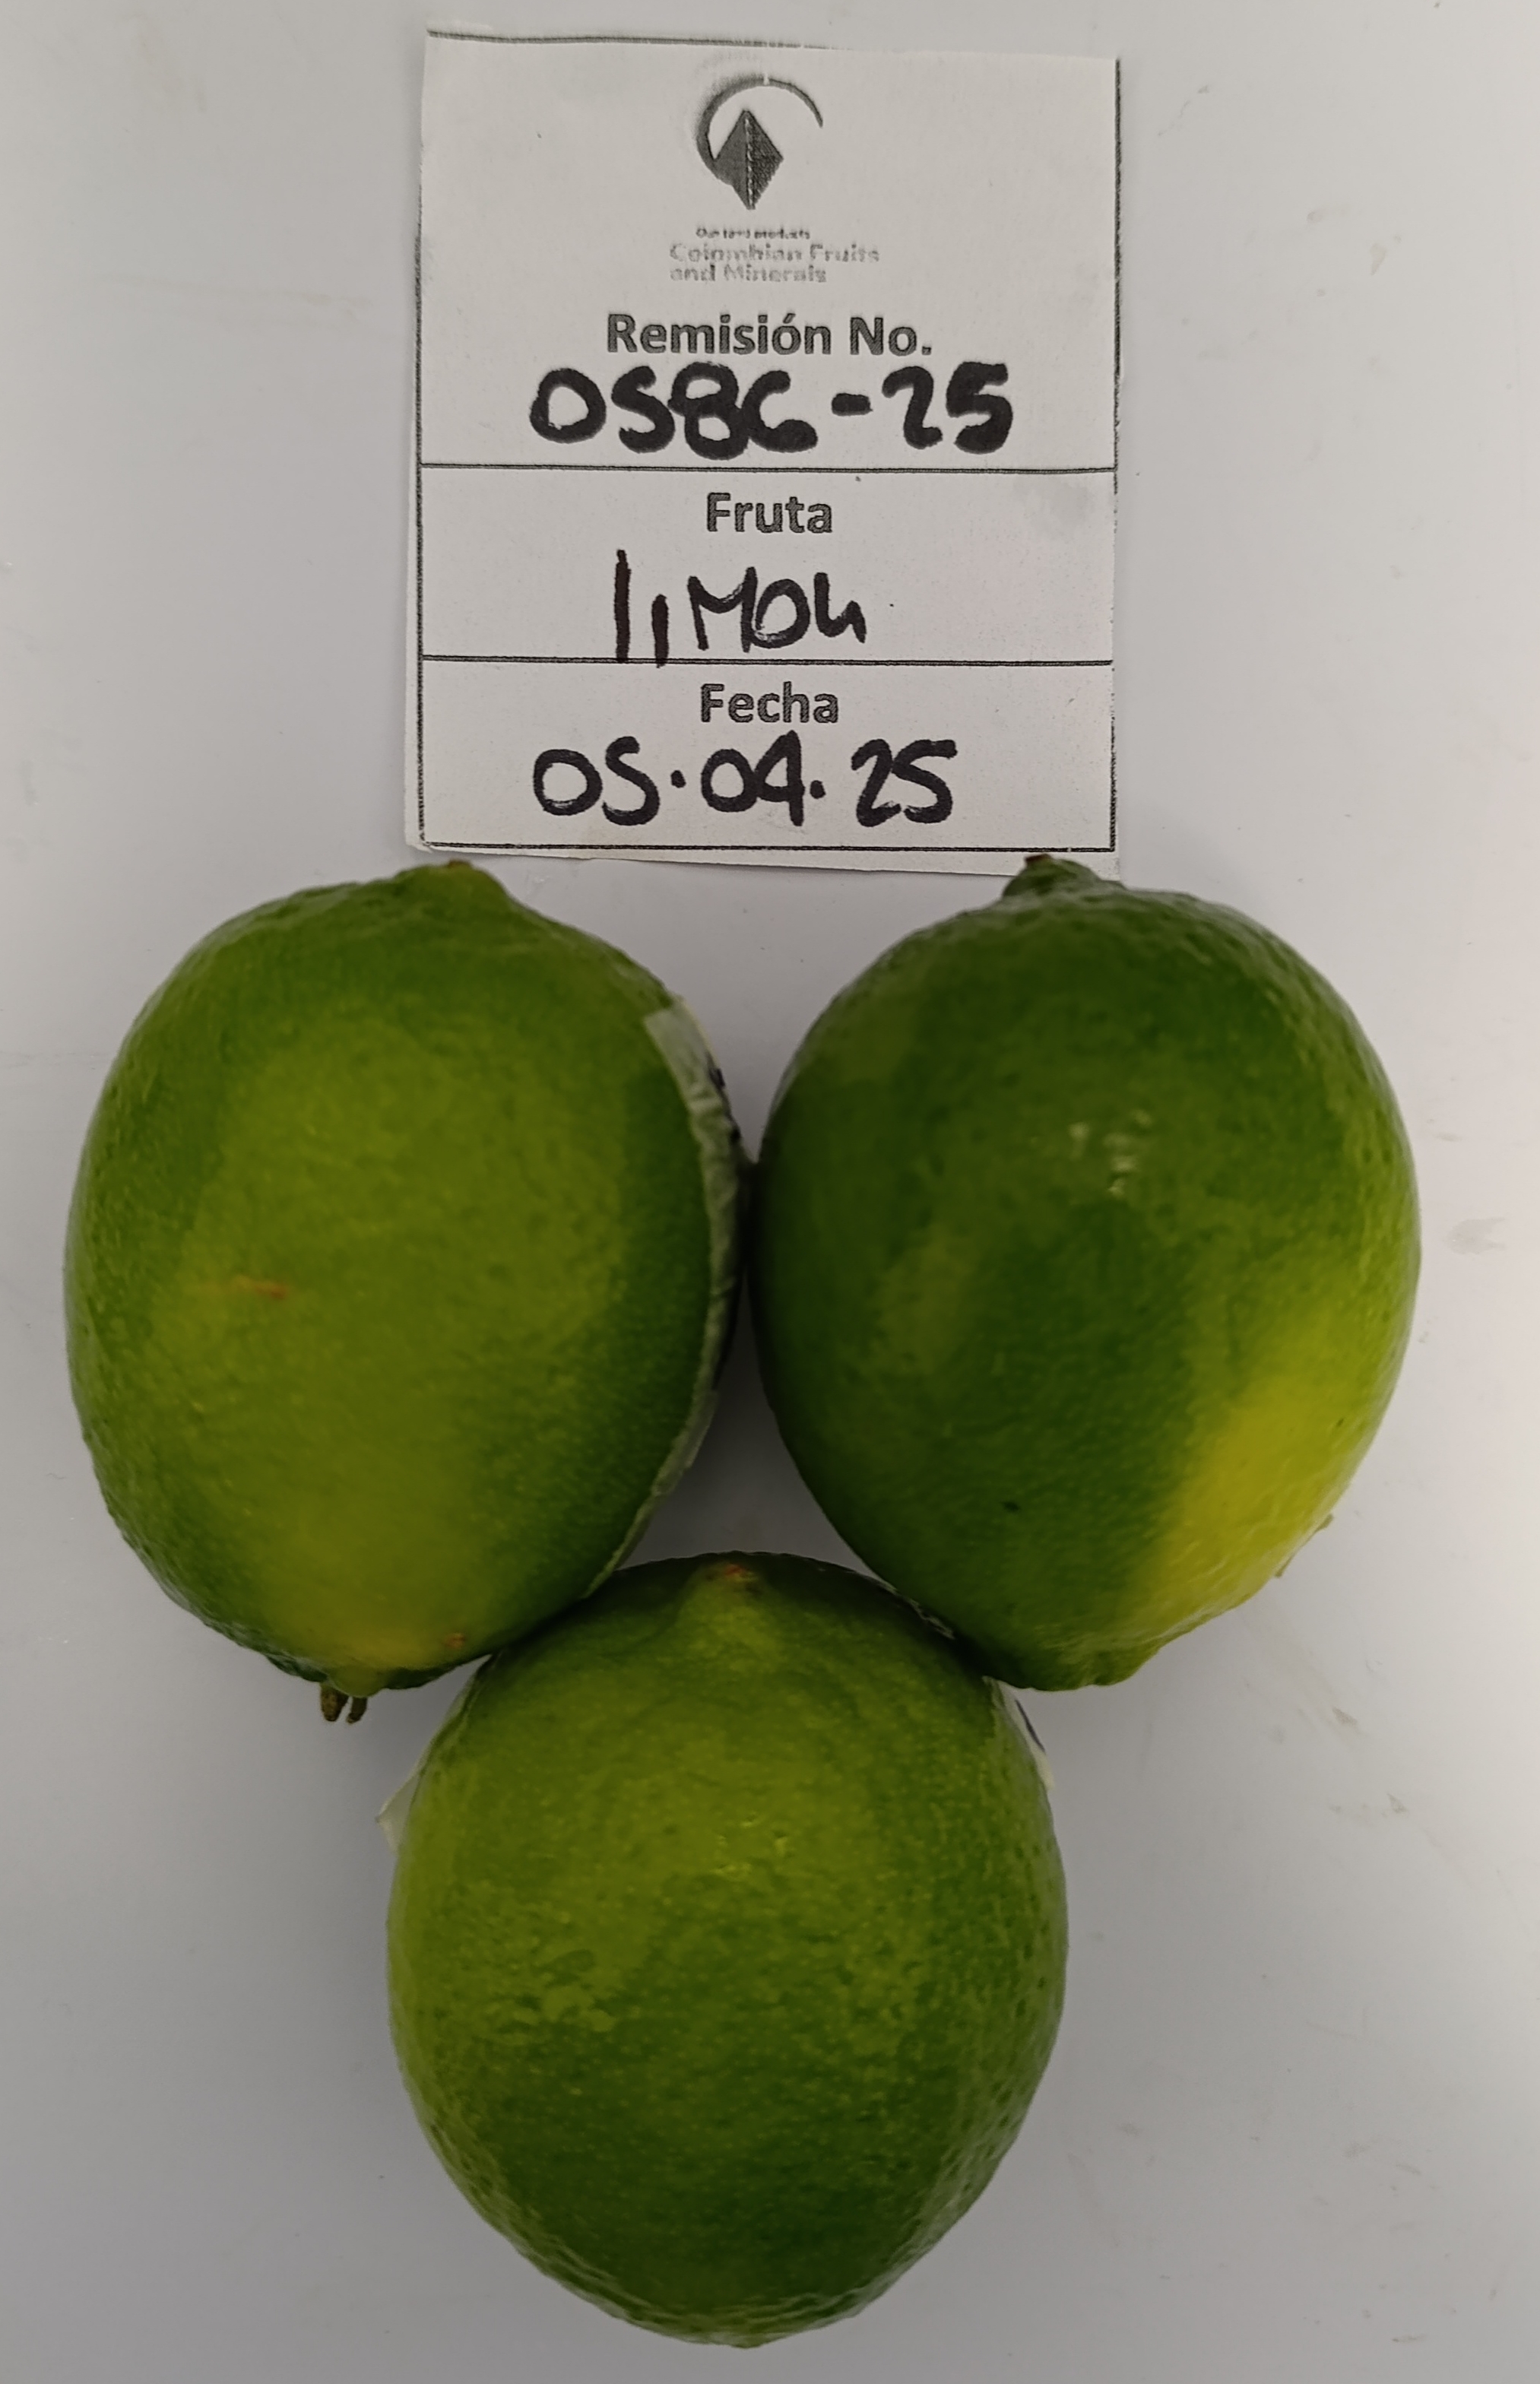 Our land products
Colombian Fruits
and Minerals
Remisión No.
0586-25
Fruta
limon
Fecha
05.04.25